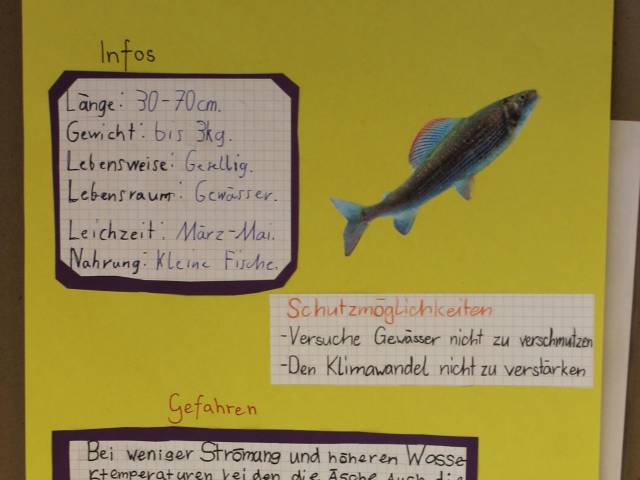 Infos
Länge: 30-70cm.
Gewicht: bis 3kg.
Lebensweise: Gesellig.
Lebensraum: Gewässer.
Leichzeit: März-Mai.
Nahrung: Kleine Fische.
Schutzmöglichkeiten
-Versuche Gewässer nicht zu verschmutzen
-Den Klimawandel nicht zu verstärken
Gefahren
Bei weniger Strömung und höheren Wasse-
rtemperaturen leiden die Äsche auch die